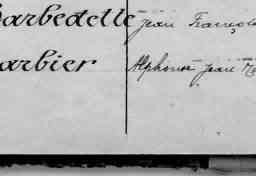 Barbedette Jean Franço
arbier Alphonse Jean